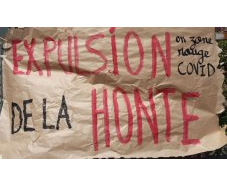 EXPULSION
en zone
rouge
COVID
DE LA HONTE